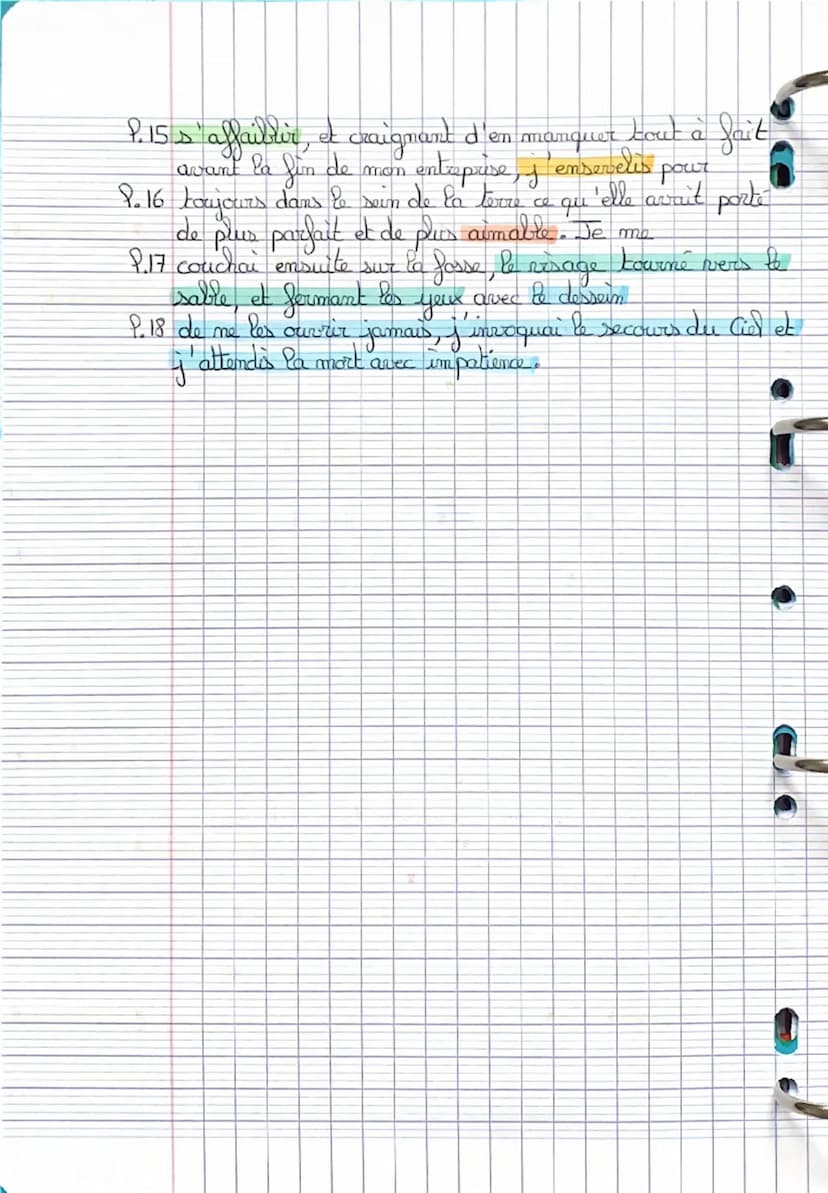 l.15 s'affaiblir, et craignant d'en manquer tout à fait
avant la fin de mon entreprise, j'ensevelis pour
l.16 toujours dans le sein de la terre ce qu'elle avait porté
de plus parfait et de plus aimable. Je me
l.17 couchai ensuite sur la fosse, le visage tourné vers le
sable, et fermant les yeux avec le dessein
l.18 de ne les ouvrir jamais, j'invoquai le secours du Ciel et
j'attendis la mort avec impatience.